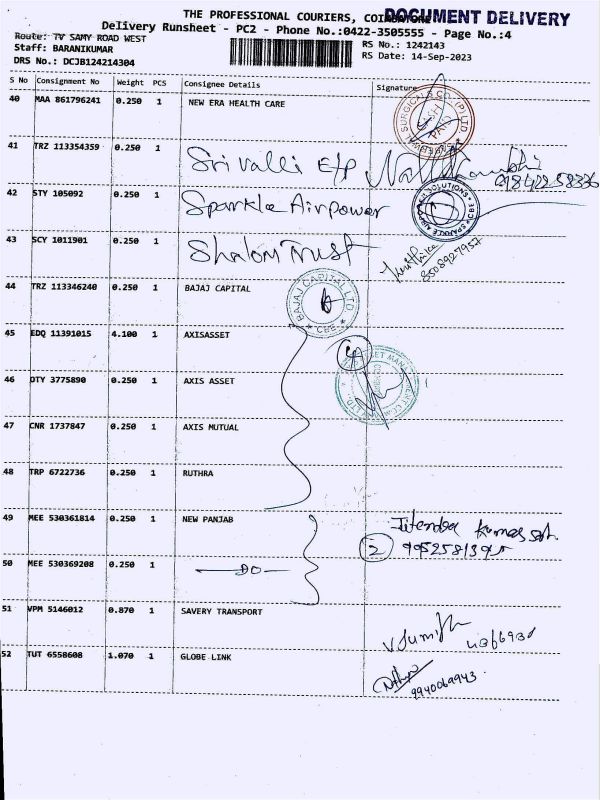 THE PROFESSIONAL COURIERS, COIMBATORE
DOCUMENT DELIVERY
Delivery Runsheet - PC2 - Phone No.:0422-3505555 - Page No.:4
Route: TV SAMY ROAD WEST
RS No.: 1242143
Staff: BARANIKUMAR
RS Date: 14-Sep-2023
DRS No.: DCJB124214304
S No Consignment No Weight PCS Consignee Details Signature
40 MAA 861796241 0.250 1 NEW ERA HEALTH CARE
41 TRZ 113354359 0.250 1 Sri Valli E/P
42 STY 105092 0.250 1 Sparkle Airpower
43 SCY 1011901 0.250 1 Shalom Trust
8508927957
44 TRZ 113346240 0.250 1 BAJAJ CAPITAL
BAJAJ CAPITAL LTD
CBE
45 EDQ 11391015 4.100 1 AXISASSET
46 DTY 3775890 0.250 1 AXIS ASSET
47 CNR 1737847 0.250 1 AXIS MUTUAL
48 TRP 6722736 0.250 1 RUTHRA
49 MEE 530361814 0.250 1 NEW PANJAB
Jitendra Kumar
2
50 MEE 530369208 0.250 1 DO
51 VPM 5146012 0.870 1 SAVERY TRANSPORT
52 TUT 6558608 1.070 1 GLOBE LINK
9940069943